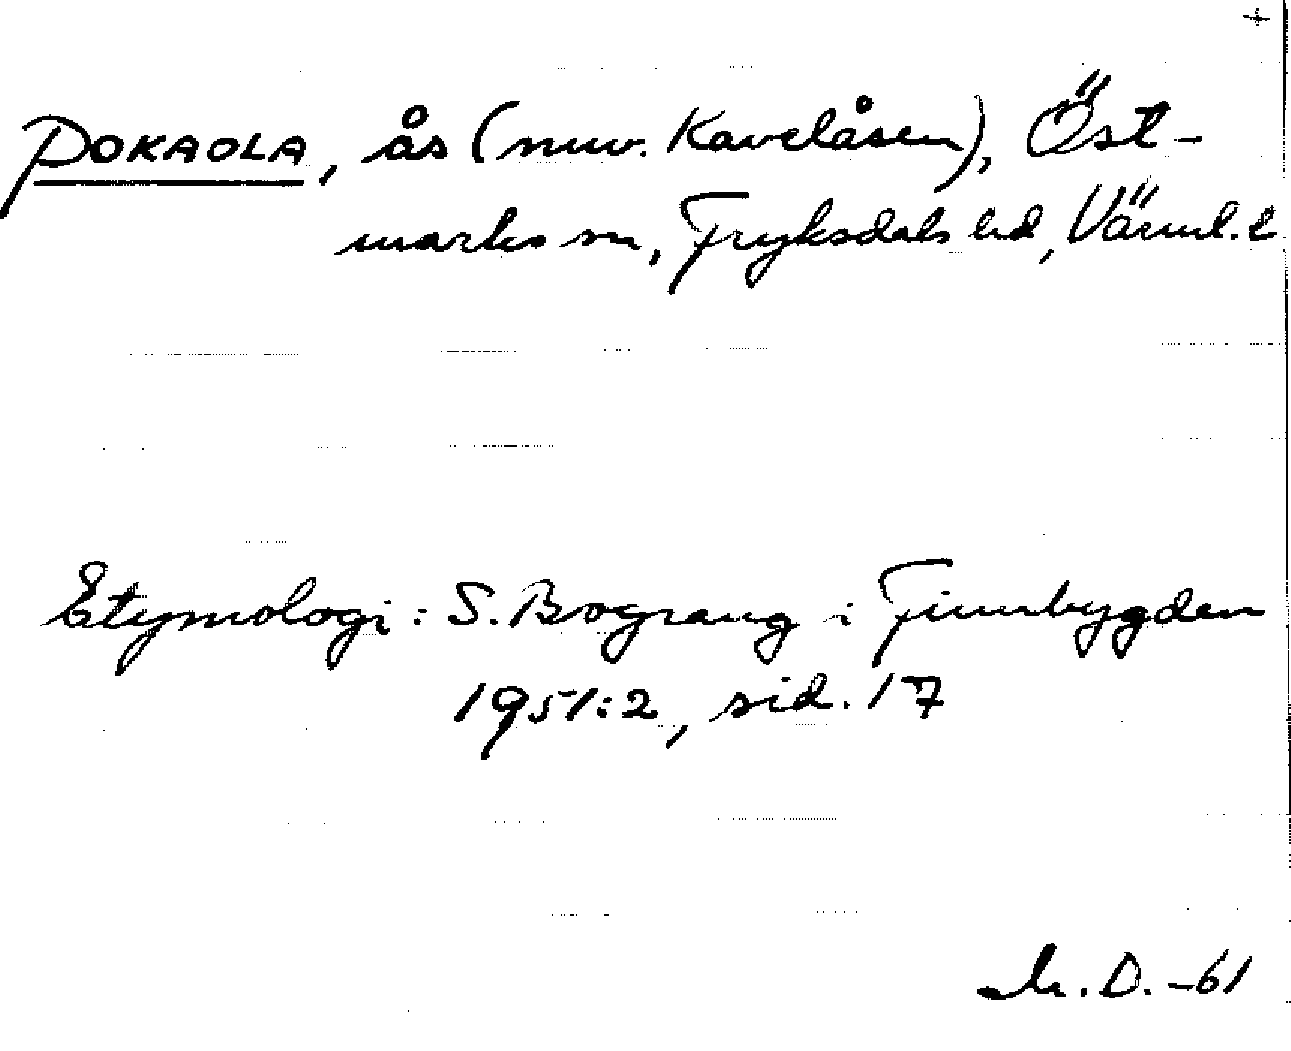 +
POKAOLA, ås (nuv. Kavelåsen), Öst-
marks sn, Fryksdals hd, Värml. l
Etymologi: S. Bograng i Finnbygden
1951:2, sid. 17
M. D. -61